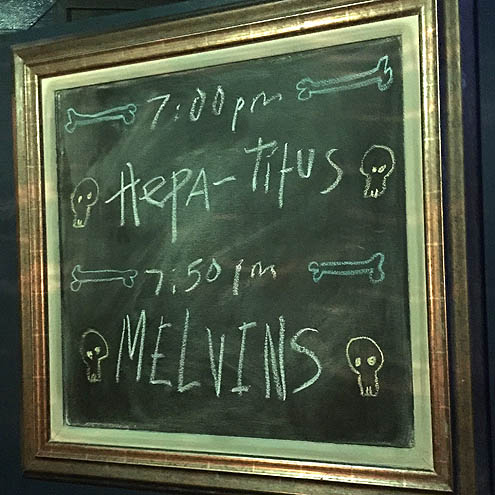 7:00pm
HEPA-TITUS
7:50pm
MELVINS